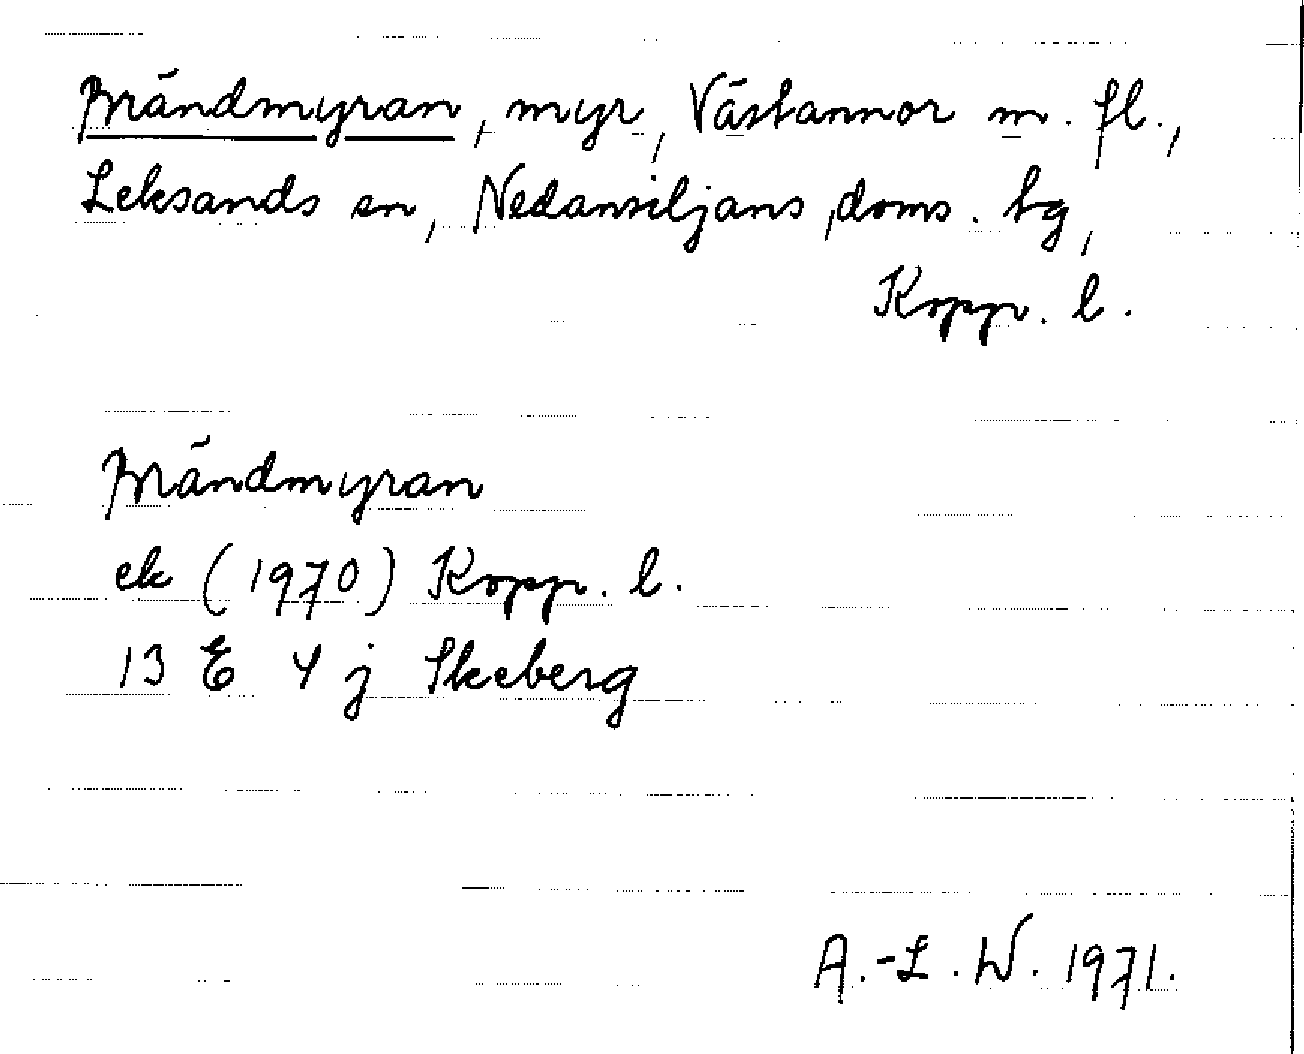 Brändmyran, myr, Västannor m. fl.,
Leksands sn, Nedansiljans doms. tg,
Kopp. l.
Brändmyran
ek (1970) Kopp. l.
13 E 4 j Skeberg
A.-L. W. 1971.